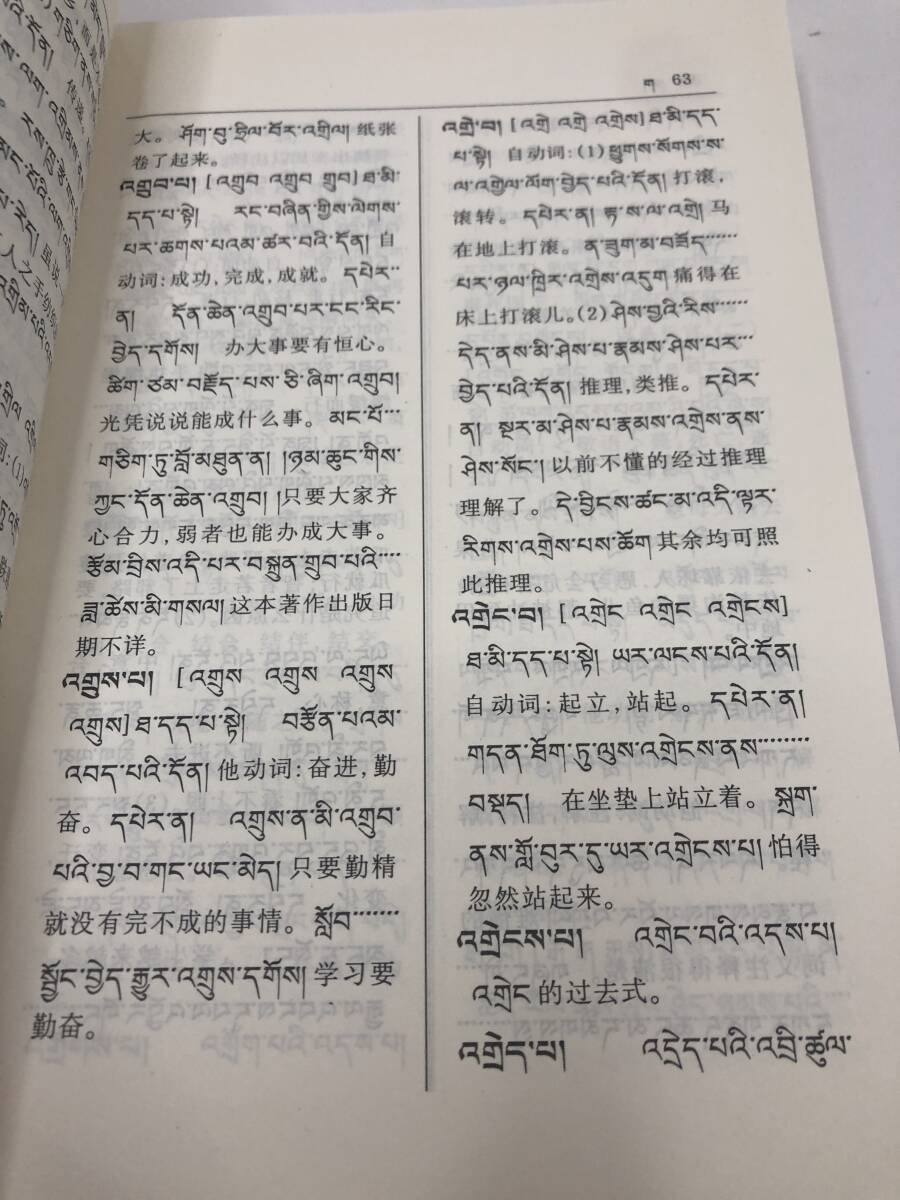 ག 63
大。 ཤོག་བུ་ཧྲིལ་པོར་འགྲིལ། 纸张
卷了起来。
འགྲུབ་པ། [འགྲུབ འགྲུབ གྲུབ] ཐ་མི་
དད་པ་སྟེ། རང་བཞིན་གྱིས་ལེགས་
པར་ཆགས་པའམ་ཚར་བའི་དོན། 自
动词:成功,完成,成就。 དཔེར་
ན། དོན་ཆེན་འགྲུབ་པར་ངང་རིང་
བྱེད་དགོས། 办大事要有恒心。
ཚིག་ཙམ་བརྗོད་པས་ཅི་ཞིག་འགྲུབ།
光凭说说能成什么事。 མང་པོ་
གཅིག་ཏུ་བློ་མཐུན་ན། །ཉམ་ཆུང་གིས་
ཀྱང་དོན་ཆེན་འགྲུབ། །只要大家齐
心合力,弱者也能办成大事。
རྩོམ་བྲིས་འདི་པར་བསྐྲུན་གྲུབ་པའི་
ཟླ་ཚེས་མི་གསལ། 这本著作出版日
期不详。
འགྲུས་པ། [འགྲུས འགྲུས འགྲུས
འགྲུས] ཐ་དད་པ་སྟེ། བརྩོན་པའམ་
འབད་པའི་དོན། 他动词:奋进,勤
奋。 དཔེར་ན། འགྲུས་ན་མི་འགྲུབ་
པའི་བྱ་བ་གང་ཡང་མེད། 只要勤精
就没有完不成的事情。 སློབ་
སྦྱོང་བྱེད་རྒྱུར་འགྲུས་དགོས། 学习要
勤奋。
འགྲེ་བ། [འགྲེ འགྲེ འགྲེས] ཐ་མི་དད་
པ་སྟེ། 自动词:(1) ཕྱུགས་སོགས་ས་
ལ་འགྱེལ་ལོག་བྱེད་པའི་དོན། 打滚,
滚转。 དཔེར་ན། རྟ་ས་ལ་འགྲེ། 马
在地上打滚。 ན་ཟུག་མ་བཟོད་
པར་ཉལ་ཁྲིར་འགྲེས་འདུག 痛得在
床上打滚儿。(2) ཤེས་བྱའི་རིས་
དེད་ནས་མི་ཤེས་པ་རྣམས་ཤེས་པར་
བྱེད་པའི་དོན། 推理,类推。 དཔེར་
ན། སྔར་མ་ཤེས་པ་རྣམས་འགྲེས་ནས་
ཤེས་སོང་། 以前不懂的经过推理
理解了。 དེ་བྱིངས་ཚང་མ་འདི་ལྟར་
རིགས་འགྲེས་པས་ཆོག 其余均可照
此推理。
འགྲེང་བ། [འགྲེང འགྲེང འགྲེངས]
ཐ་མི་དད་པ་སྟེ། ཡར་ལངས་པའི་དོན།
自动词:起立,站起。 དཔེར་ན།
གདན་ཐོག་ཏུ་ལུས་འགྲེངས་ནས་
བསྡད། 在坐垫上站立着。 སྐྲག་
ནས་གློ་བུར་དུ་ཡར་འགྲེངས་པ། 怕得
忽然站起来。
འགྲེངས་པ། འགྲེང་བའི་འདས་པ།
འགྲེང 的过去式。
འགྲེད་པ། འདྲེད་པའི་འབྲི་ཚུལ་